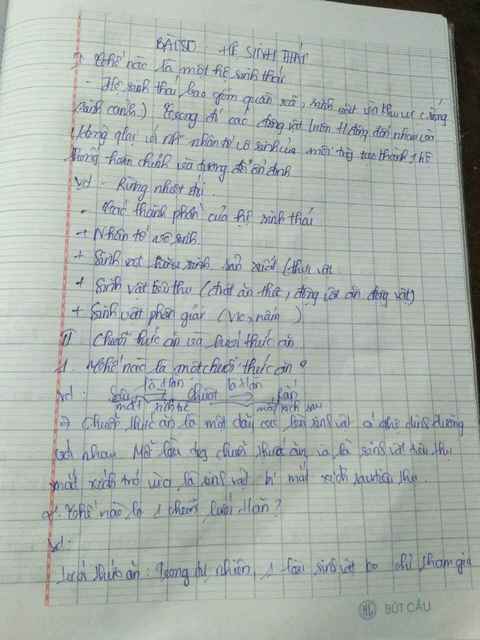 BÀI 50 HỆ SINH THÁI
I Thế nào là một hệ sinh thái
- Hệ sinh thái bao gồm quần xã, sinh vật và khu vực sống
(sinh cảnh) Trong đó các động vật luôn tđộng đến nhau và
tđộng qlại và nhân tố vô sinh của môi trg tạo thành 1 hệ
thống hoàn chỉnh và tương đối ổn định
Vd - Rừng nhiệt đới
- Các thành phần của hệ sinh thái
+ Nhân tố vô sinh
+ Sinh vật sản xuất (thực vật
+ Sinh vật tiêu thụ (thực vật, động vật ăn động vật)
+ Sinh vật phân giải (VK, nấm)
II Chuỗi thức ăn và lưới thức ăn
1. Thế nào là một chuỗi thức ăn?
Vd: Sâu là tăn chuột là tăn rắn
mắt xích trc mắt xích sau
⇒ Chuỗi thức ăn là một dãy các loài sinh vật có qhệ dinh dưỡng
với nhau. Mỗi loài trog chuỗi thức ăn, va là sinh vật tiêu thụ
mắt xích trc vừa là sinh vật bị mắt xích sau tiêu thụ.
2. Thế nào là 1 chuỗi, lưới tăn?
Vd:
Lưới thức ăn: Trong tự nhiên, 1 loài sinh vật ko chỉ tham gia
BÚT CẦU